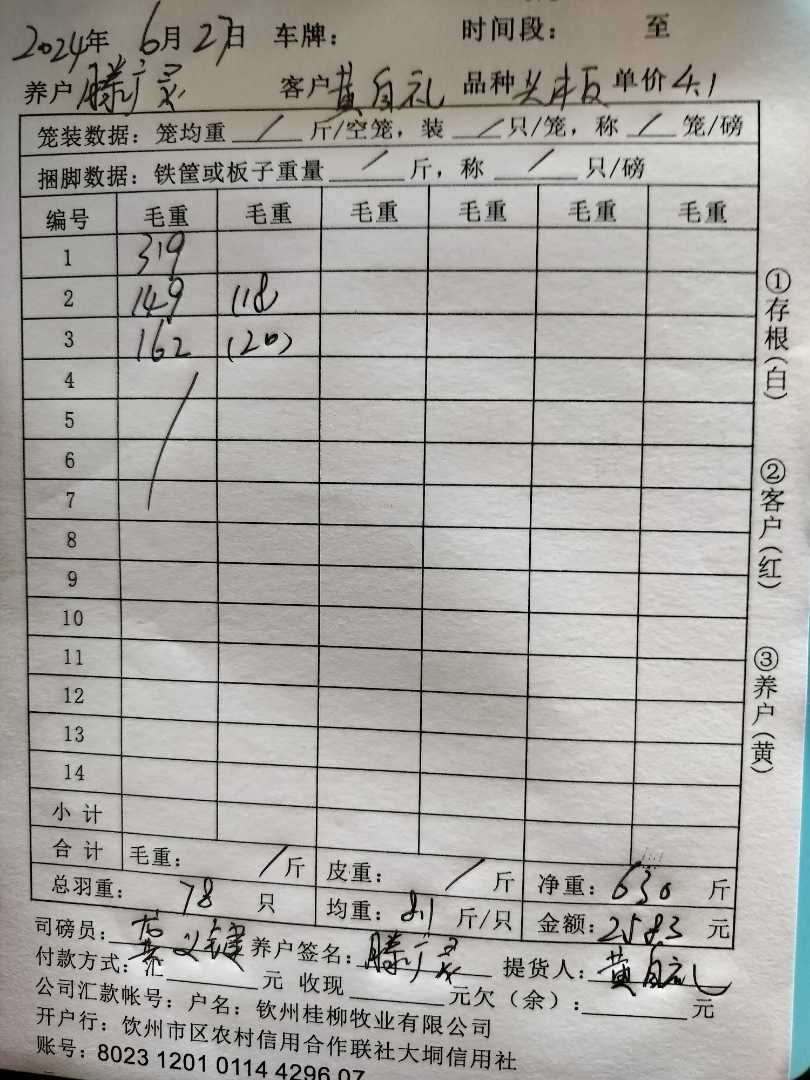 2024年 6月 27日 车牌: 时间段: 至
养户 滕广灵 客户 黄自礼 品种 单价 4.1
笼装数据: 笼均重 / 斤/空笼, 装 / 只/笼, 称 / 笼/磅
捆脚数据: 铁筐或板子重量 / 斤, 称 / 只/磅
编号 毛重 毛重 毛重 毛重 毛重 毛重
1 319
2 149 (18
3 162 (20)
4
5
6
7
8
9
10
11
12
13
14
小计
合计 毛重: / 斤 皮重: / 斤 净重: 630 斤
总羽重: 78 只 均重: 8.1 斤/只 金额: 2583 元
司磅员: 养户签名: 滕广灵 提货人: 黄自礼
付款方式: 汇 元 收现 元欠(余): 元
公司汇款帐号: 户名: 钦州桂柳牧业有限公司
开户行: 钦州市区农村信用合作联社大垌信用社
账号: 8023 1201 0114 4296 07
①存根(白)
②客户(红)
③养户(黄)